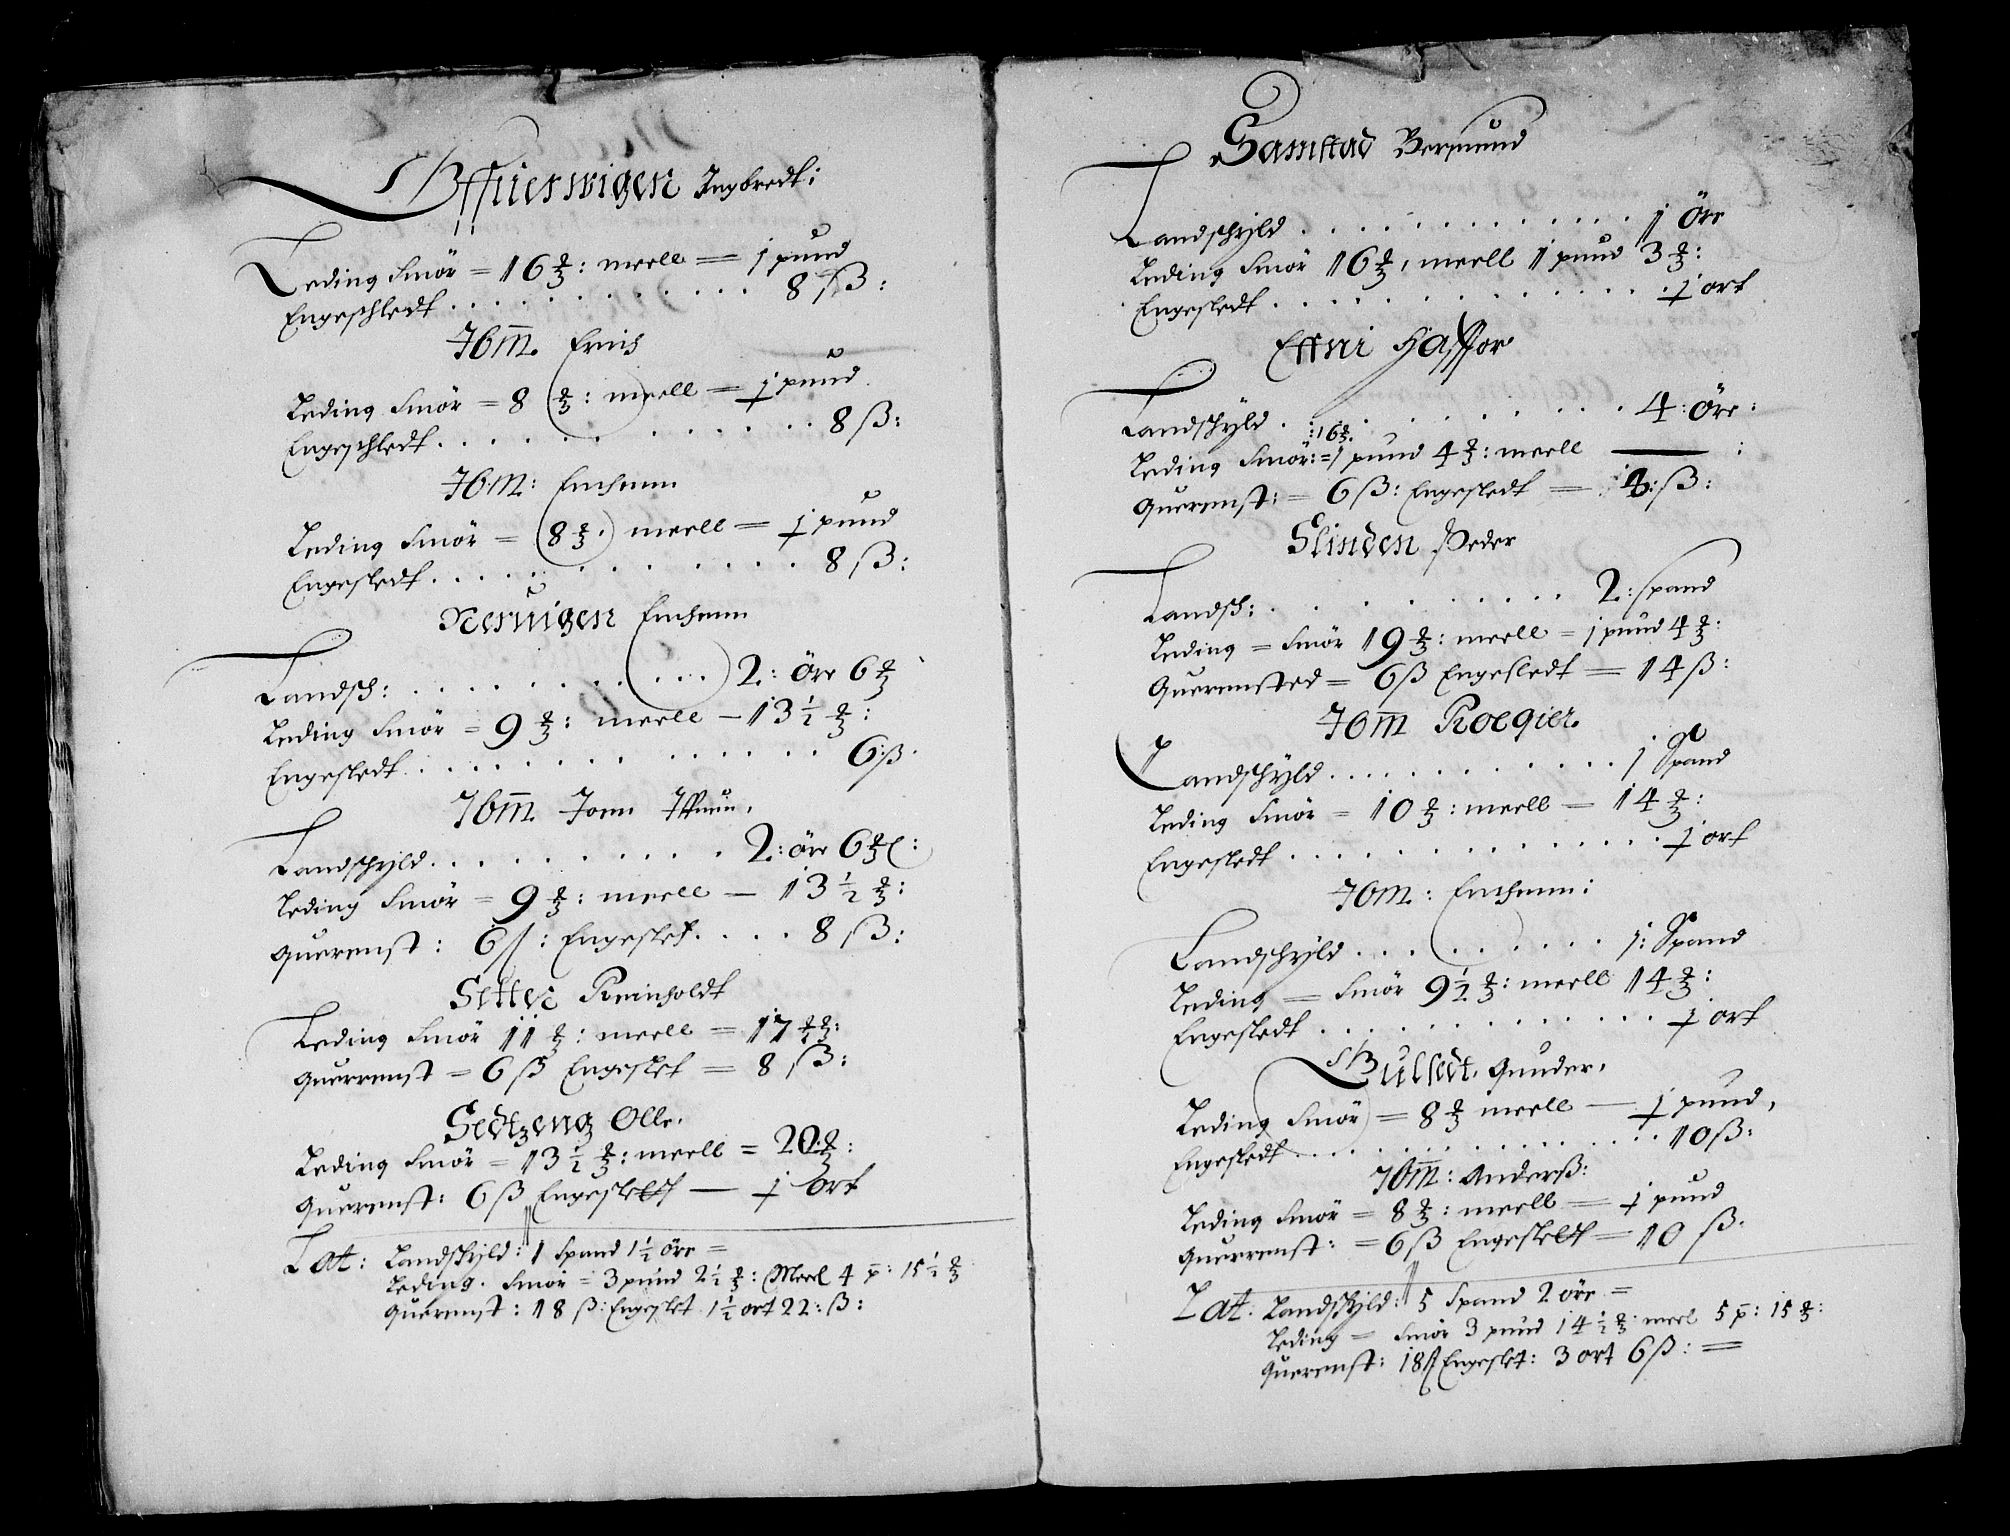 Offuerwigen Ingbredt:
Leding Smör = 16 ℔: meell = 1 pund
Engeschledt . . . . . . . . . . 8 ß:
Ibm̅. Erich
Leding Smör = 8 ℔: meell = 1 pund
Engeschledt . . . . . . . . . . 8 ß:
Ibm: Enchenn
Leding Smör = 8 ℔. meell = 1 pund
Engesledt . . . . . . . . . . 8 ß:
Neruigen Enchenn
Landsch: . . . . . . . . . . 2: öre 6 ℔
Leding Smör = 9 ℔: meell — 13 ½ ℔:
Engesledt . . . . . . . . . . 6 ß.
Ibm̅ Joen
Landschyld . . . . . . . . . . 2: öre 6 ℔:
Leding Smör = 9 ℔: meell — 13 ½ ℔:
Querenst: 6 ß: Engeslet. . . . 8 ß:
Setter Reinholdt
Leding Smör 11 ℔: meell = 17 ℔:
Querrenst = 6 ß Engeslet = 8 ß:
Sedtzeng Olle.
Leding Smör = 13 ½ ℔: meell = 20 ℔:
Querenst: 6 ß Engesledt — 1 ort
Lat: Landschyld: 1 Spand 1 ½ öre =
Leding. Smör = 3 pund 2 ½ ℔: Meel 4 p̅: 15 ½ ℔
Querenst: 18 ß: Engeslet 1 ½ ort 22: ß:
Samstad Bermund
Landschyld . . . . . . . . . . 1 öre
Leding Smör 16 ℔, meell 1 pund 3 ℔:
Engesledt . . . . . . . . . . 1 ort
Effni Haffor
Landschyld . . . . . . . . . . 4: öre:
:16 ℔.
Leding Smör: = 1 pund 4 ℔: meell ——— :
Querenst: = 6 ß: Engesledt = 18: ß:
Slinden Peder
Landsch: . . . . . . . . . . 2: spand
Leding = Smör 19 ℔: meell = 1 pund 4 ℔:
Querensted = 6 ß Engesledt = 14 ß:
Ibm̅ Roegier.
Landschyld . . . . . . . . . . 1 Spand
Leding Smör = 10 ℔: meell = 14 ℔:
Engesledt . . . . . . . . . . 1 ort
Ibm: Enchenn:
Landschyld . . . . . . . . . . 1: Spand
Leding = Smör 9 ½ ℔: meell 14 ℔:
Engesledt . . . . . . . . . . 1 ort
Gulsedt. Gunder.
Leding Smör = 8 ℔ meell — 1 pund,
Engesledt . . . . . . . . . . 10 ß:
Ibm̅: Anderß:
Leding Smör = 8 ℔: meell = 1 pund
Querrenst: = 6 ß Engesledt = 10 ß.
Lat. Landschyld: 5 Spand 2 öre =
Leding = Smör 3 pund 14 ½ ℔: meel 5 p̅: 15 ℔:
Querenst: 18 ß Engeslet: 3 ort 6 ß: =